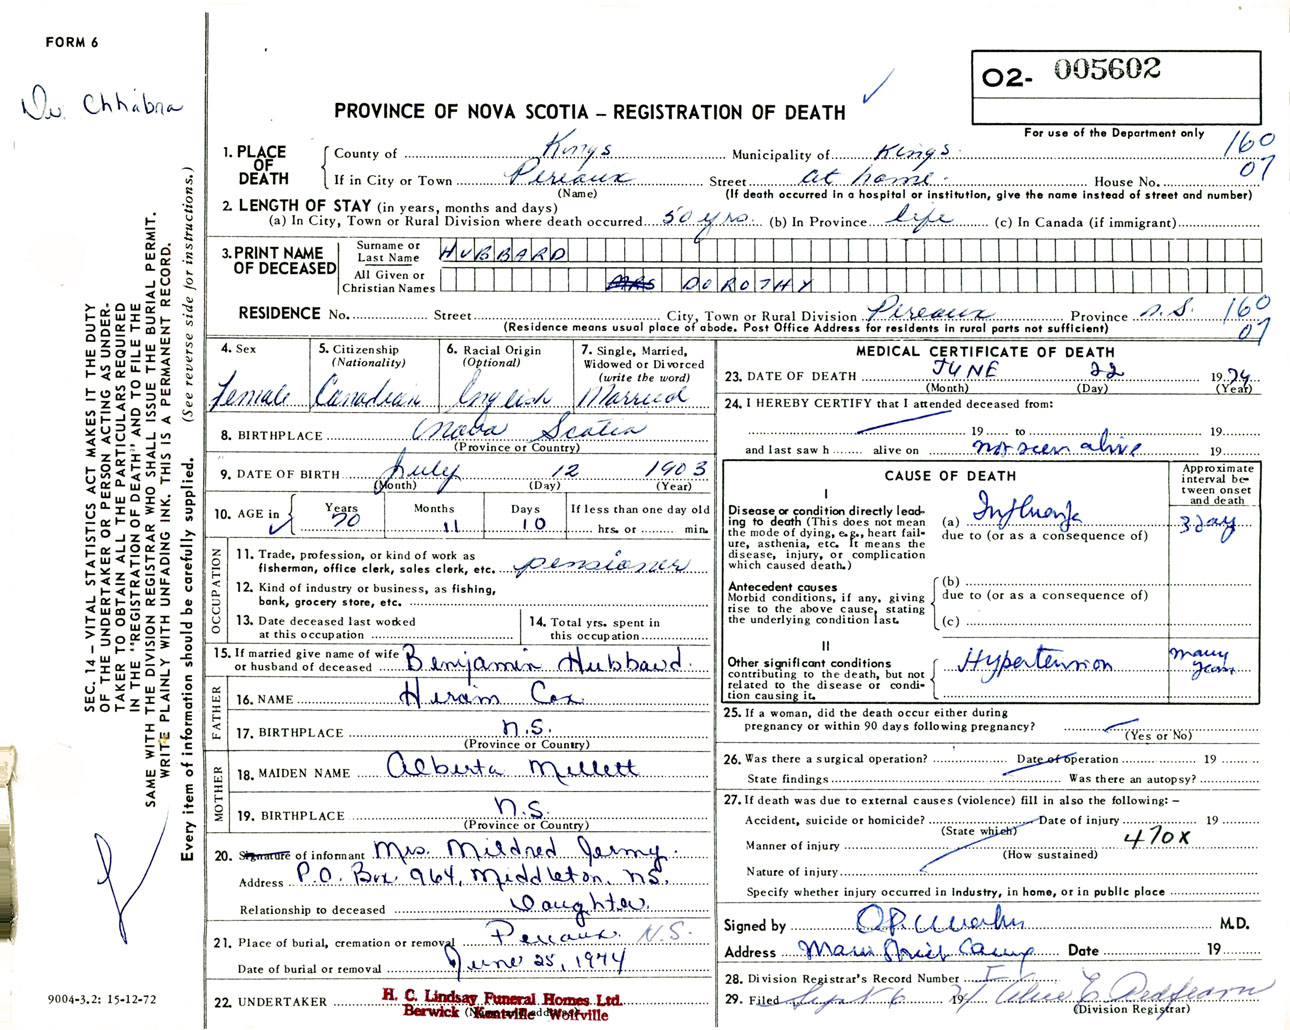 FORM 6
Dr. Chhabra
O2- 005602
PROVINCE OF NOVA SCOTIA – REGISTRATION OF DEATH
For use of the Department only
160
07
1. PLACE OF DEATH
County of Kings Municipality of Kings
If in City or Town Pereaux Street at home. House No.
(Name) (If death occurred in a hospital or institution, give the name instead of street and number)
2. LENGTH OF STAY (in years, months and days)
(a) In City, Town or Rural Division where death occurred 50 yrs. (b) In Province life (c) In Canada (if immigrant)
3. PRINT NAME OF DECEASED
Surname or Last Name HUBBARD
All Given or Christian Names MRS DOROTHY
RESIDENCE No. Street City, Town or Rural Division Pereaux Province N.S. 160
07
(Residence means usual place of abode. Post Office Address for residents in rural parts not sufficient)
4. Sex
Female
5. Citizenship
(Nationality)
Canadian
6. Racial Origin
(Optional)
English
7. Single, Married,
Widowed or Divorced
(write the word)
Married
8. BIRTHPLACE Nova Scotia
(Province or Country)
9. DATE OF BIRTH July 12 1903
(Month) (Day) (Year)
10. AGE in
Years Months Days If less than one day old
70 11 10 hrs. or min.
OCCUPATION
11. Trade, profession, or kind of work as
fisherman, office clerk, sales clerk, etc. pensioner
12. Kind of industry or business, as fishing,
bank, grocery store, etc.
13. Date deceased last worked
at this occupation
14. Total yrs. spent in
this occupation
15. If married give name of wife
or husband of deceased Benjamin Hubbard.
FATHER
16. NAME Hiram Cox
17. BIRTHPLACE N.S.
(Province or Country)
MOTHER
18. MAIDEN NAME Alberta Millett
19. BIRTHPLACE N.S.
(Province or Country)
20. Signature of informant Mrs. Mildred
Address P.O. Box 964, Middleton, NS.
Relationship to deceased Daughter.
21. Place of burial, cremation or removal Pereaux. N.S.
Date of burial or removal June 25, 1974
22. UNDERTAKER H. C. Lindsay Funeral Homes Ltd.
Berwick Kentville Wolfville
(Name and address)
MEDICAL CERTIFICATE OF DEATH
23. DATE OF DEATH JUNE 22 1974
(Month) (Day) (Year)
24. I HEREBY CERTIFY that I attended deceased from:
19 to 19
and last saw h alive on not seen alive 19
CAUSE OF DEATH
Approximate
interval be-
tween onset
and death
I
Disease or condition directly lead-
ing to death (This does not mean
the mode of dying, e.g., heart fail-
ure, asthenia, etc. It means the
disease, injury, or complication
which caused death.)
(a) Influenza
due to (or as a consequence of)
3 day
Antecedent causes
Morbid conditions, if any, giving
rise to the above cause, stating
the underlying condition last.
(b)
due to (or as a consequence of)
(c)
II
Other significant conditions
contributing to the death, but not
related to the disease or condi-
tion causing it.
Hypertension
many
years
25. If a woman, did the death occur either during
pregnancy or within 90 days following pregnancy?
(Yes or No)
26. Was there a surgical operation? Date of operation 19
State findings Was there an autopsy?
27. If death was due to external causes (violence) fill in also the following: –
Accident, suicide or homicide? Date of injury 19
(State which)
Manner of injury 470X
(How sustained)
Nature of injury
Specify whether injury occurred in industry, in home, or in public place
Signed by M.D.
Address Date 19
28. Division Registrar's Record Number
29. Filed Sept 6 1974 Alice E.
(Division Registrar)
SEC. 14 – VITAL STATISTICS ACT MAKES IT THE DUTY
OF THE UNDERTAKER OR PERSON ACTING AS UNDER-
TAKER TO OBTAIN ALL THE PARTICULARS REQUIRED
IN THE "REGISTRATION OF DEATH" AND TO FILE THE
SAME WITH THE DIVISION REGISTRAR WHO SHALL ISSUE THE BURIAL PERMIT.
WRITE PLAINLY WITH UNFADING INK. THIS IS A PERMANENT RECORD.
Every item of information should be carefully supplied. (See reverse side for instructions.)
9004-3.2: 15-12-72